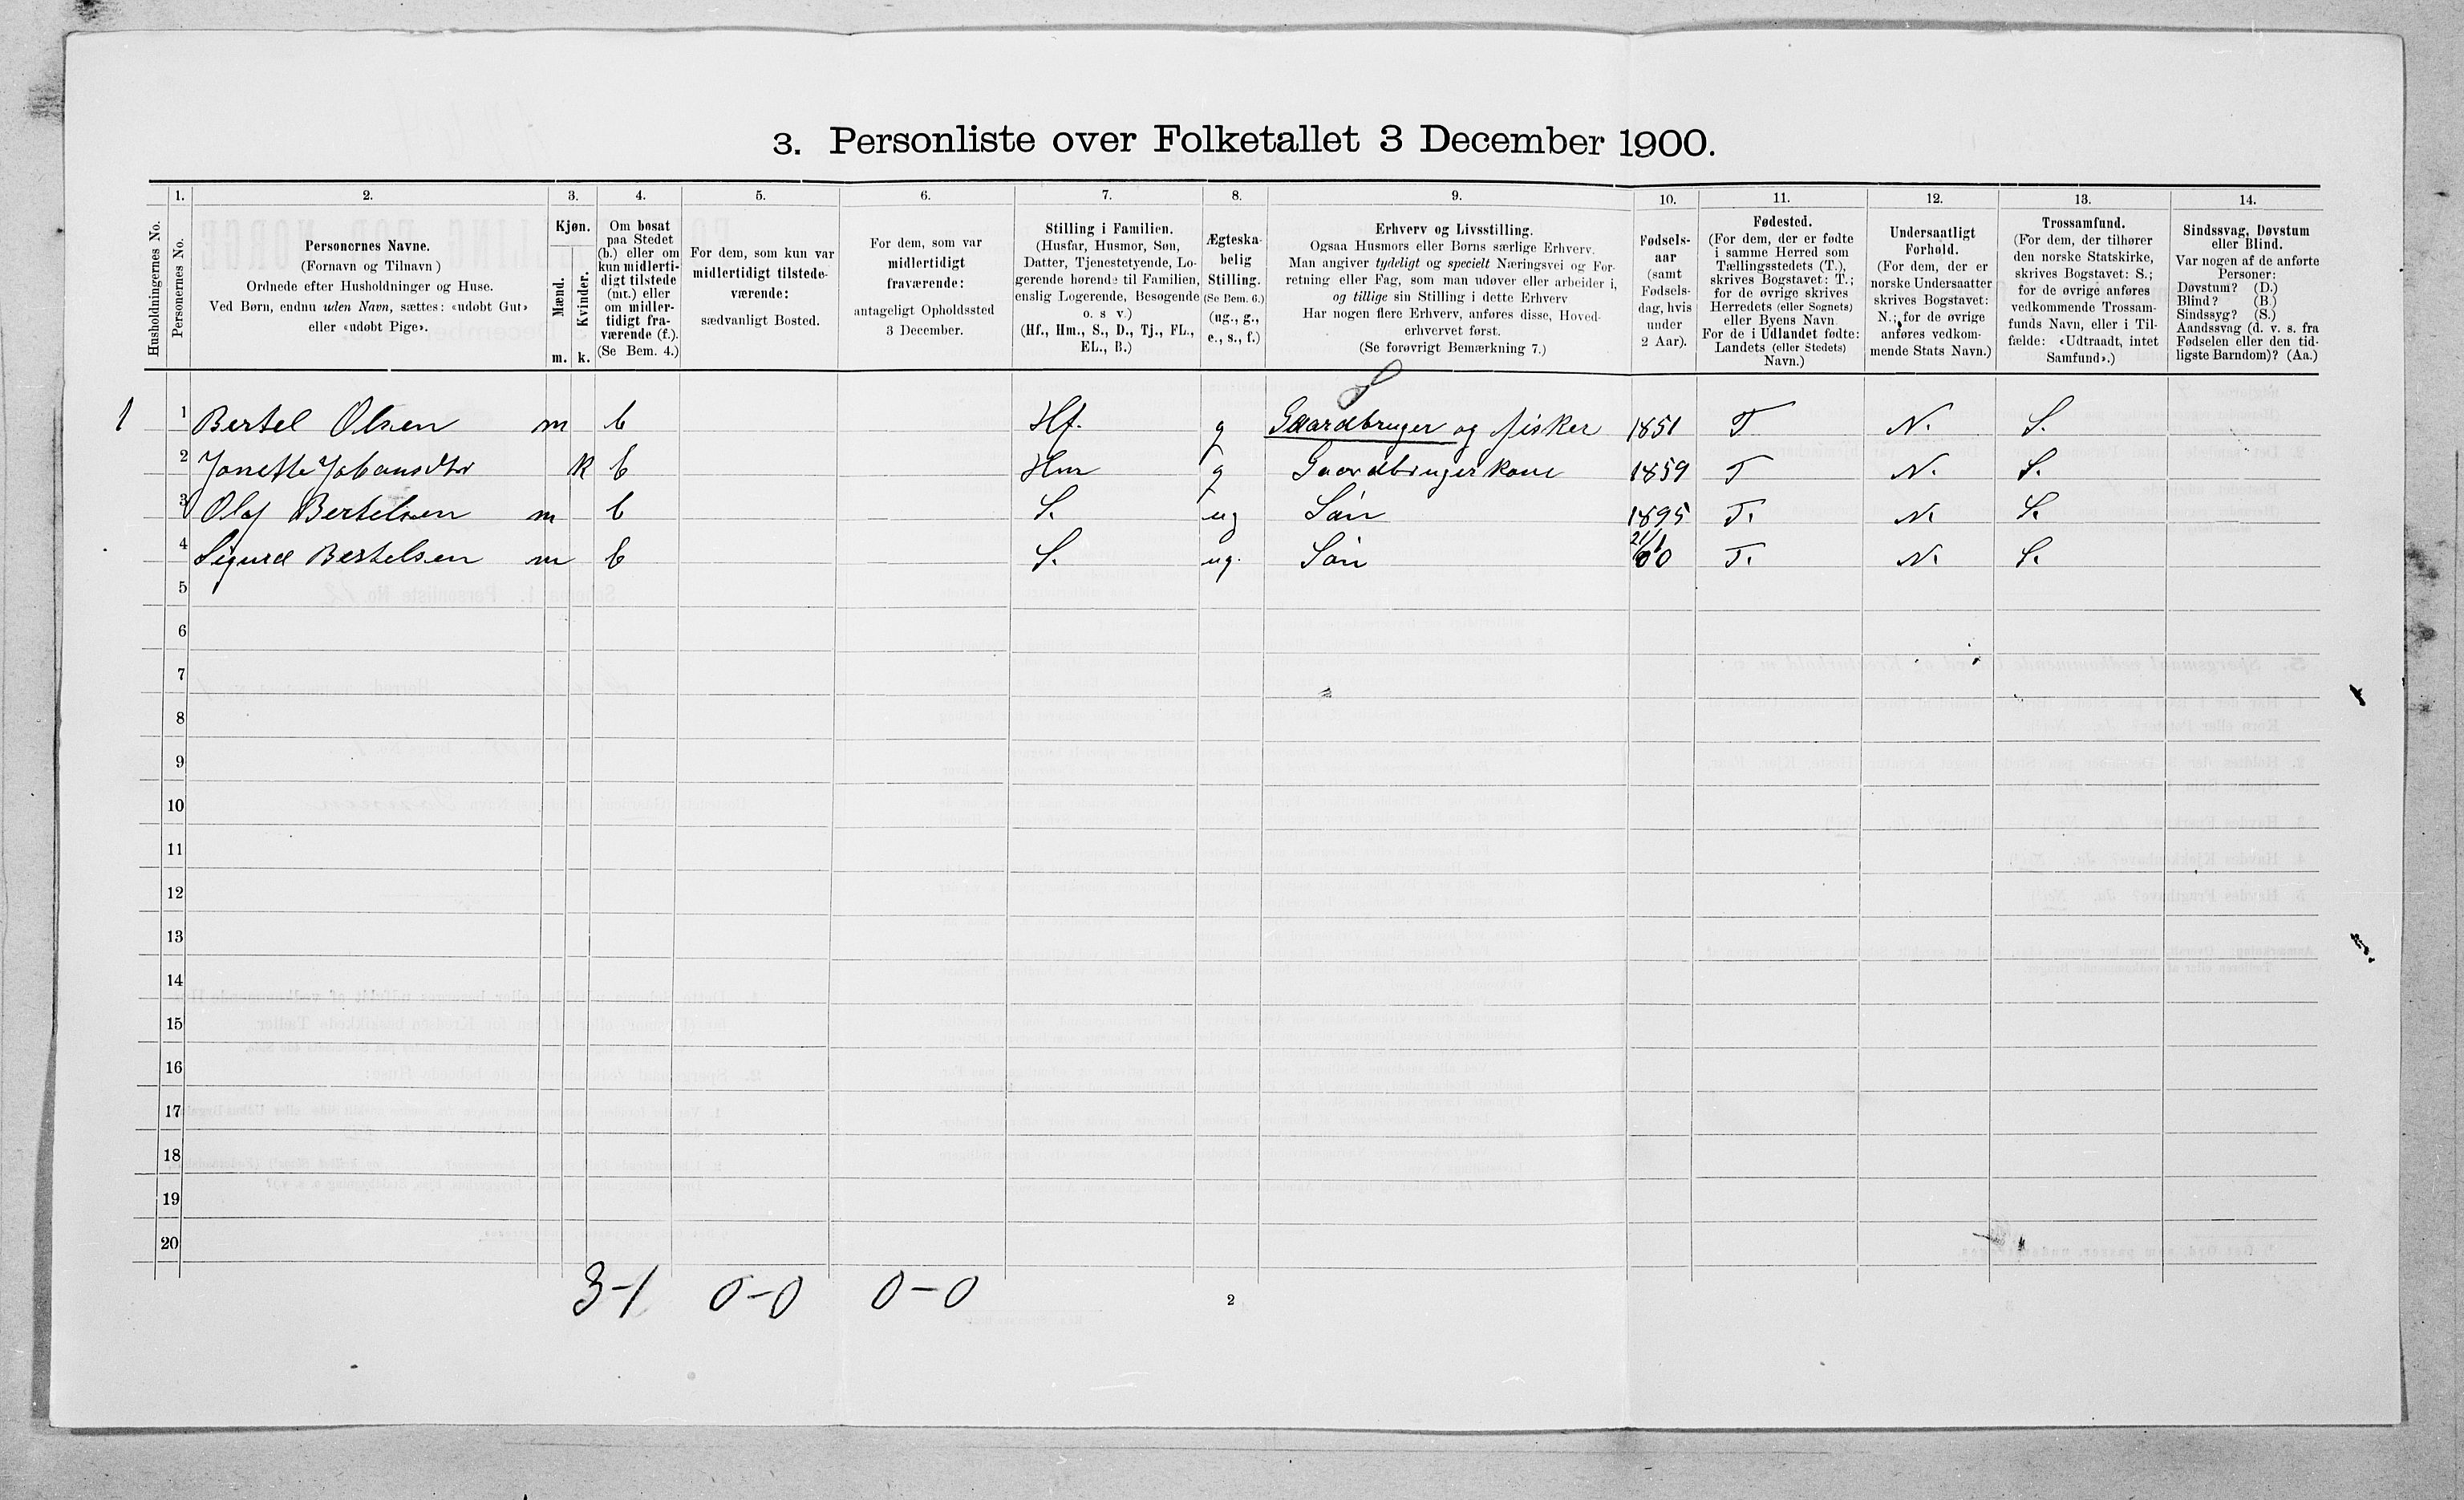 3. Personliste over Folketallet 3 December 1900.
1. 2. 3. 4. 5. 6. 7. 8. 9. 10. 11. 12. 13. 14.
Husholdningernes No.
Personernes No.
Personernes Navne.
(Fornavn og Tilnavn)
Ordnede efter Husholdninger og Huse.
Ved Børn, endnu uden Navn, sættes: «udøbt Gut»
eller «udøbt Pige».
Kjøn.
Mænd.
Kvinder.
m. k.
Om bosat
paa Stedet
(b.) eller om
kun midlerti-
digt tilstede
(mt.) eller
om midler-
tidigt fra-
værende (f.).
(Se Bem. 4.)
For dem, som kun var
midlertidigt tilstede-
værende:
sædvanligt Bosted.
For dem, som var
midlertidigt
fraværende:
antageligt Opholdssted
3 December.
Stilling i Familien.
(Husfar, Husmor, Søn,
Datter, Tjenestetyende, Lo-
gerende hørende til Familien,
enslig Logerende, Besøgende
o. s v.)
(Hf., Hm., S., D., Tj., FL.,
EL., B.)
Ægteska-
belig
Stilling.
(Se Bem. 6.)
(ug., g.,
e., s., f.)
Erhverv og Livsstilling.
Ogsaa Husmors eller Børns særlige Erhverv.
Man angiver tydeligt og specielt Næringsvei og For-
retning eller Fag, som man udøver eller arbeider i,
og tillige sin Stilling i dette Erhverv
Har nogen flere Erhverv, anføres disse, Hoved-
erhvervet først.
(Se forøvrigt Bemærkning 7.)
Fødsels-
aar
(samt
Fødsels-
dag, hvis
under
2 Aar).
Fødested.
(For dem, der er fødte
i samme Herred som
Tællingsstedets (T.),
skrives Bogstavet: T.;
for de øvrige skrives
Herredets (eller Sognets)
eller Byens Navn
For de i Udlandet fødte:
Landets (eller Stedets)
Navn.)
Undersaatligt
Forhold.
(For dem, der er
norske Undersaatter
skrives Bogstavet:
N.; for de øvrige
anføres vedkom-
mende Stats Navn.)
Trossamfund.
(For dem, der tilhører
den norske Statskirke,
skrives Bogstavet: S.;
for de øvrige anføres
vedkommende Trossam-
funds Navn, eller i Til-
fælde: «Udtraadt, intet
Samfund».)
Sindssvag, Døvstum
eller Blind.
Var nogen af de anførte
Personer:
Døvstum? (D.)
Blind? (B.)
Sindssyg? (S.)
Aandssvag (d. v. s. fra
Fødselen eller den tid-
ligste Barndom)? (Aa.)
1 1 Bertel Olsen m b Hf. g Gaardbruger og fisker 1851 T N. S.
2 Jonette Johansdtr k b Hm g Gaardbrugerkone 1859 T N. S.
3 Olaf Bertelsen m b S. ug Søn 1895 T. N. S.
4 Sigurd Bertelsen m b S. ug. Søn 21/1 00 T. N. S.
5
6
7
8
9
10
11
12
13
14
15
16
17
18
19
20
3-1 0-0 0-0
2